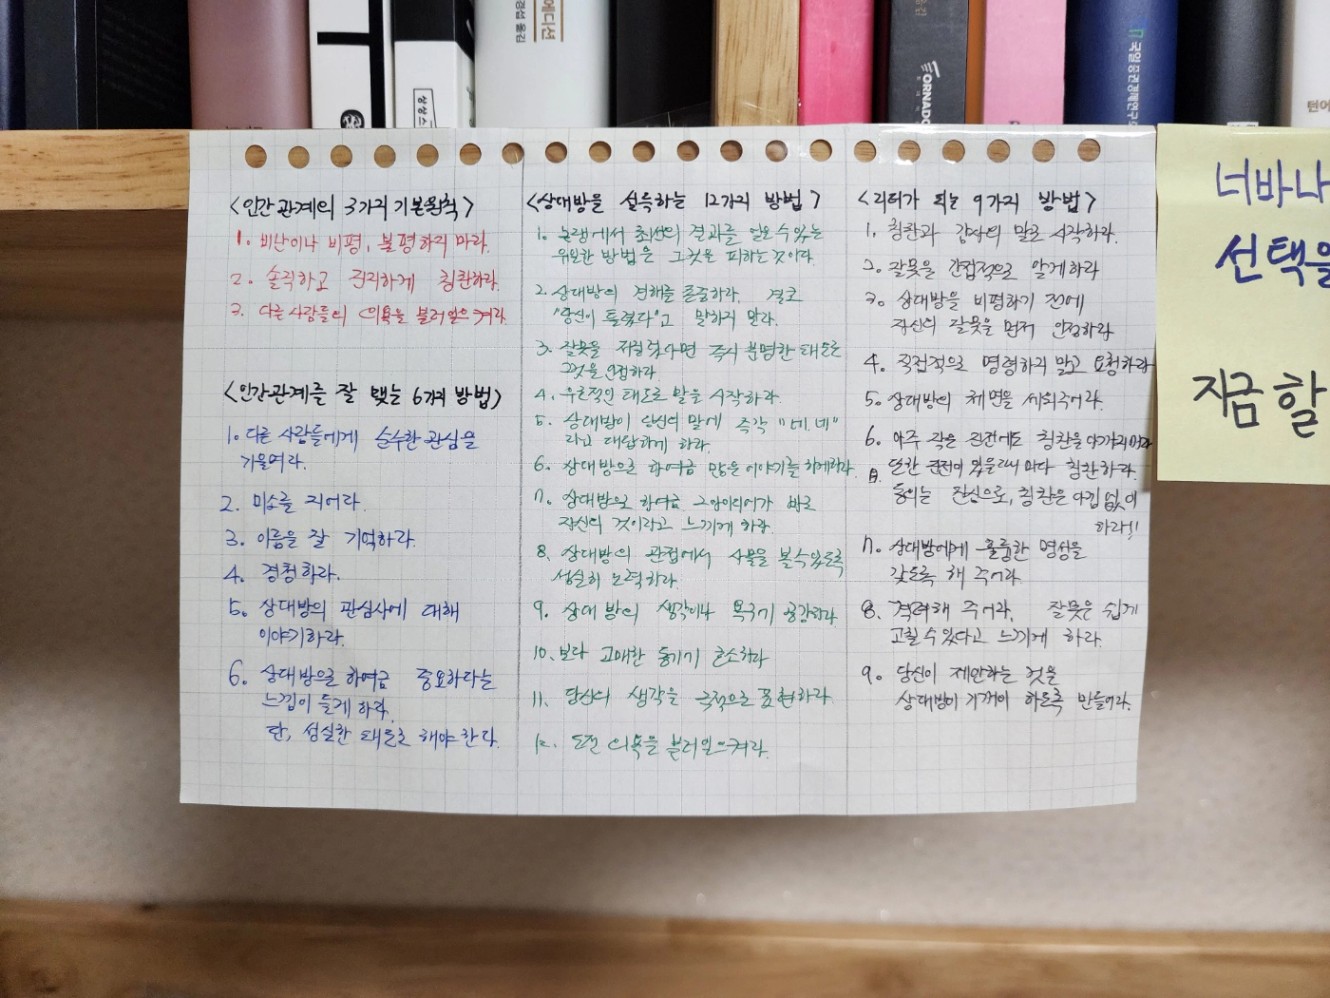 에디션
FORNADO
국일증권경제연구소
<인간관계의 3가지 기본원칙>
1. 비난이나 비평, 불평하지 마라.
2. 솔직하고 진지하게 칭찬하라.
3. 다른 사람들의 욕을 불러일으켜라.
<인간관계를 잘 맺는 6가지 방법>
1. 다른 사람들에게 순수한 관심을
기울여라.
2. 미소를 지어라.
3. 이름을 잘 기억하라.
4. 경청하라.
5. 상대방의 관심사에 대해
이야기하라.
6. 상대방으로 하여금 중요하다는
느낌이 들게 하라.
단, 성실한 태도로 해야 한다.
<상대방을 설득하는 12가지 방법>
1. 논쟁에서 최선의 결과를 얻을 수 있는
유일한 방법은 그것을 피하는 것이다.
2. 상대방의 견해를 존중하라. 결코
"당신이 틀렸다"고 말하지 말라.
3. 잘못을 저질렀다면 즉시 분명한 태도로
그것을 인정하라.
4. 우호적인 태도로 말을 시작하라.
5. 상대방이 당신의 말에 즉각 "네. 네"
라고 대답하게 하라.
6. 상대방으로 하여금 많은 이야기를 하게하라.
7. 상대방으로 하여금 그 아이디어가 바로
자신의 것이라고 느끼게 하라.
8. 상대방의 관점에서 사물을 볼 수 있도록
성실히 노력하라.
9. 상대방의 생각이나 욕구에 공감하라.
10. 보다 고매한 동기에 호소하라
11. 당신의 생각을 극적으로 표현하라.
12. 도전 의욕을 불러일으켜라.
<리더가 되는 9가지 방법>
1. 칭찬과 감사의 말로 시작하라.
2. 잘못을 간접적으로 알게하라
3. 상대방을 비평하기 전에
자신의 잘못을 먼저 인정하라
4. 직접적으로 명령하지 말고 요청하라
5. 상대방의 체면을 세워주어라.
6. 아주 작은 진전에도 칭찬을 아끼지마라
또한 진전이 있을때마다 칭찬하라.
동의는 진심으로, 칭찬은 아낌 없이
하라!!
7. 상대방에게 훌륭한 명성을
갖도록 해 주어라.
8. 격려해 주어라. 잘못은 쉽게
고칠 수 있다고 느끼게 하라.
9. 당신이 제안하는 것을
상대방이 기꺼이 하도록 만들어라.
너바나
선택을
지금 할